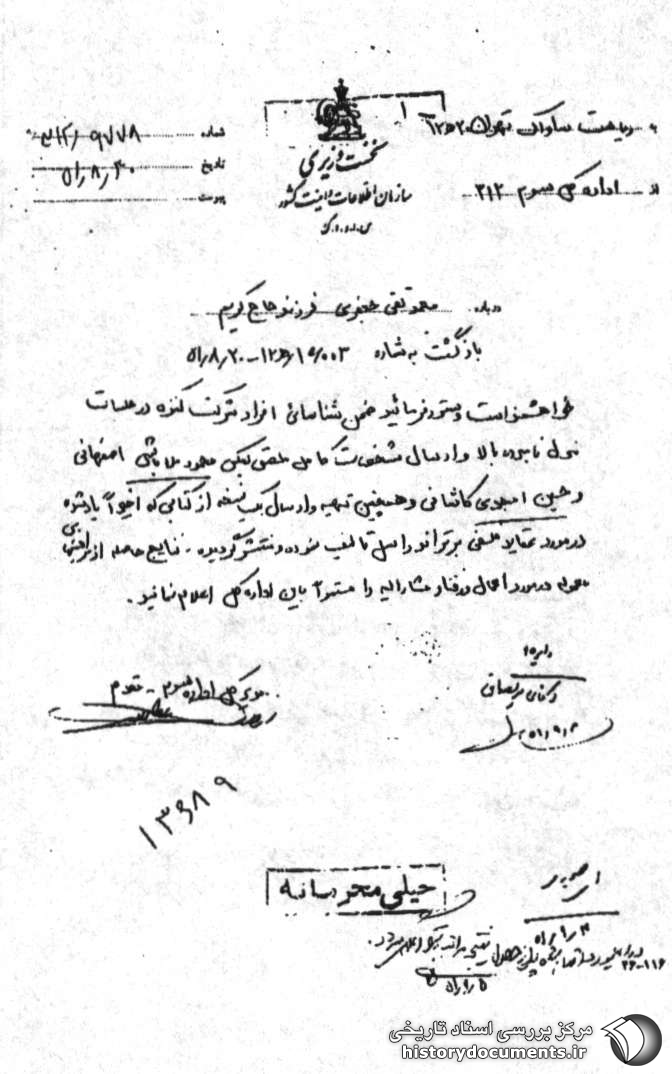 به ریاست ساواک تهران ۲۰ ه‍ ۱۲
از اداره کل سوم ۳۱۲
نخست وزیری
سازمان اطلاعات و امنیت کشور
س.ا.و.ا.ک
شماره ۹۷۷۸
تاریخ ۵۱٫۸٫۳۰
پیوست
درباره محمدتقی جعفری فرزند حاج کریم
بازگشت به شماره ۵۱٫۸٫۲۰
خواهشمند است دستور فرمائید ضمن شناسائی افراد شرکت کننده در جلسات
نامبرده بالا و ارسال مشخصات کامل محمود ملاباشی اصفهانی
و حسین کاشانی و همچنین تهیه و ارسال یک نسخه از کتابی که اخیراً یادشده
در مورد عقاید فلسفی برتراند راسل تالیف نموده و منتشر گردیده. نتایج حاصله از مراقبتهای
معموله در مورد اعمال و رفتار مشارالیه را مستمراً باین اداره کل اعلام نمایند.
مدیر کل اداره سوم - مقدم
۱۳۵۸۹
خیلی محرمانه
۵۱٫۹٫۴
۵۱٫۹٫۵
۲۶-۱۱۶
مرکز بررسی اسناد تاریخی
historydocuments.ir